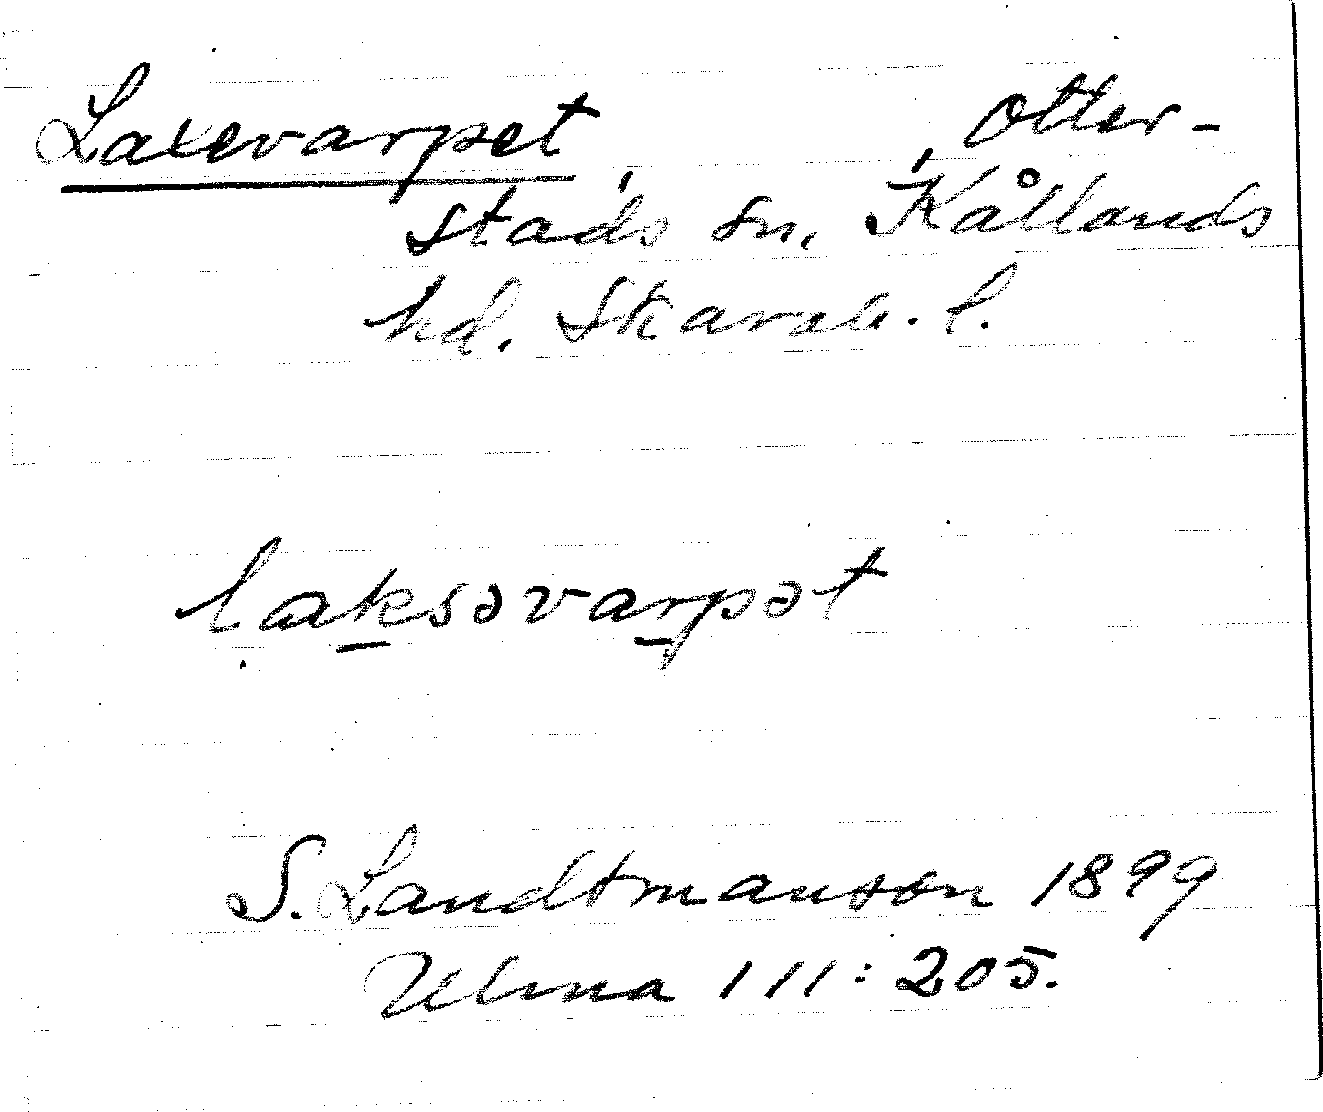 Laxevarpet, Otter-
stads sn, Kållands
hd. Skarab. l.
laksəvarpət
S. Landtmanson 1899
Ulma 111:205.